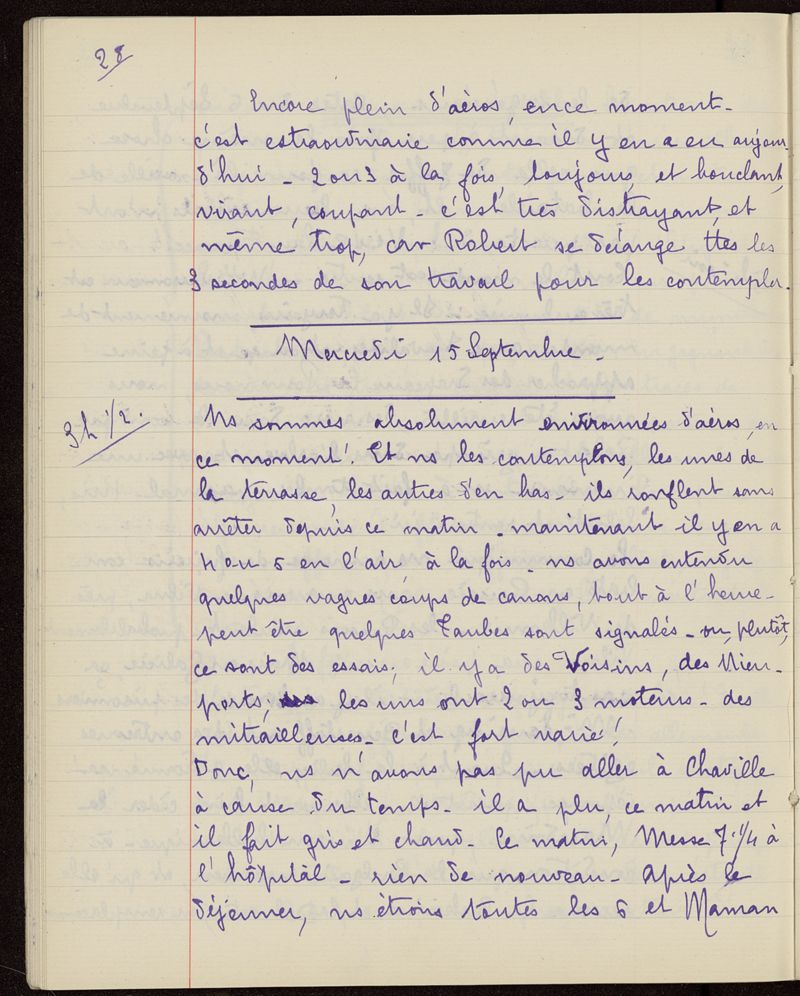 28
Encore plein d'aéros, en ce moment -
c'est extraordinaire comme il y en a eu aujour-
d'hui - 2 ou 3 à la fois, toujours, et bouclant,
virant, coupant - c'est très distrayant, et
même trop, car Robert se dérange ttes les
3 secondes de son travail pour les contempler.
Mercredi 15 Septembre -
3h 1/2.
Ns sommes absolument environnées d'aéros, en
ce moment! Et ns les contemplons, les unes de
la terrasse, les autres d'en bas - ils ronflent sans
arrêter depuis ce matin - maintenant il y en a
4 ou 5 en l'air à la fois - ns avons entendu
quelques vagues coups de canons, tout à l'heure -
peut être quelques Taubes sont signalés - ou, plutôt,
ce sont des essais; il y a des Voisins, des Nieu-
ports; les uns ont 2 ou 3 moteurs - des
mitrailleuses - c'est fort varié!
Donc, ns n'avons pas pu aller à Chaville
à cause du temps - il a plu, ce matin et
il fait gris et chaud - Ce matin, Messe 7.1/4 à
l'hôpital - rien de nouveau - Après le
déjeuner, ns étions toutes les 5 et Maman